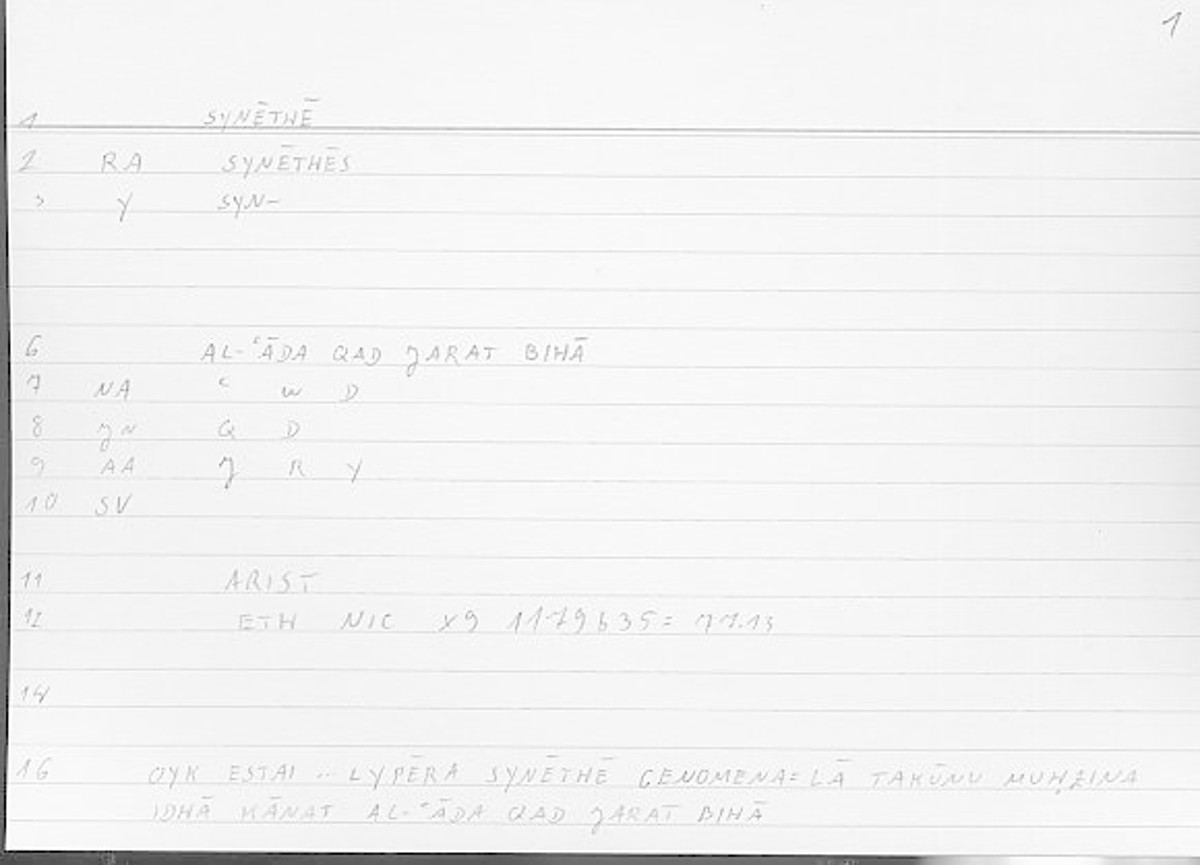 1
1 SYNĒTHĒ
2 RA SYNĒTHĒS
3 Y SYN-
6 AL-ʿĀDA QAD JARAT BIHĀ
7 NA ʿ W D
8 JN Q D
9 AA J R Y
10 SV
11 ARIST
12 ETH NIC X9 1179b35= 77.13
14
16 OYK ESTAI ... LYPĒRA SYNĒTHĒ GENOMENA= LĀ TAKŪNU MUḤZINA
IDHĀ KĀNAT AL-ʿĀDA QAD JARAT BIHĀ